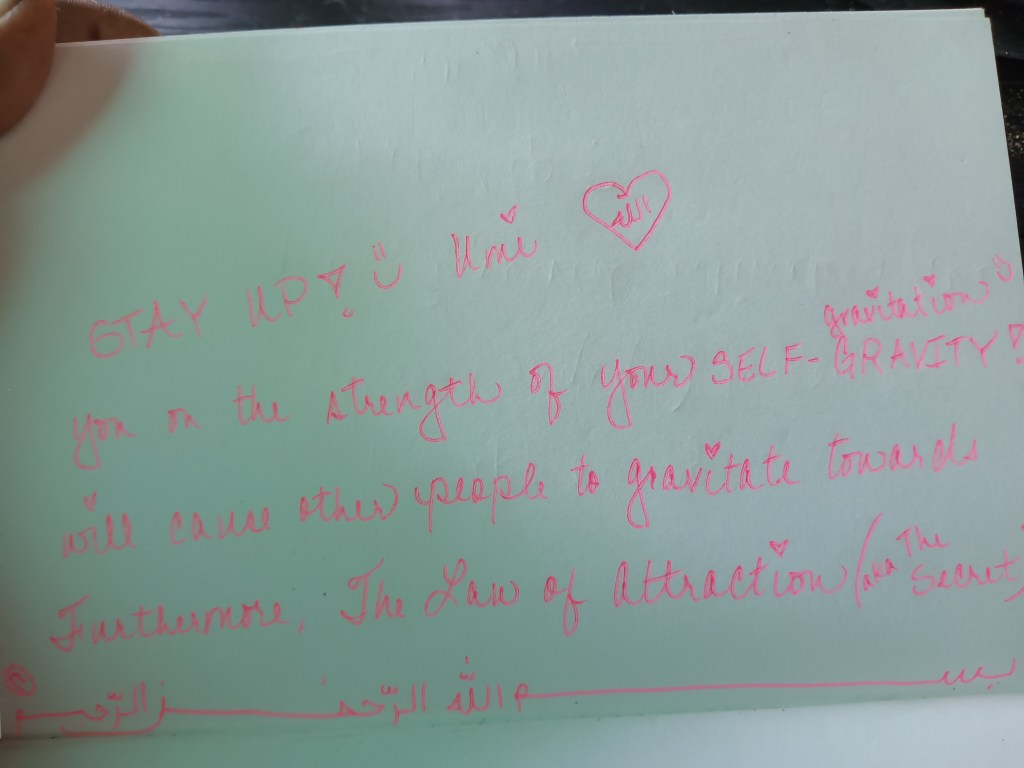 بســـــم الله الرّحمـــــن الرّحيـــــم
Furthermore, The Law of Attraction (aka The Secret)
will cause other people to gravitate towards
you on the strength of your SELF-GRAVITY!
gravitation
STAY UP! Umi الله